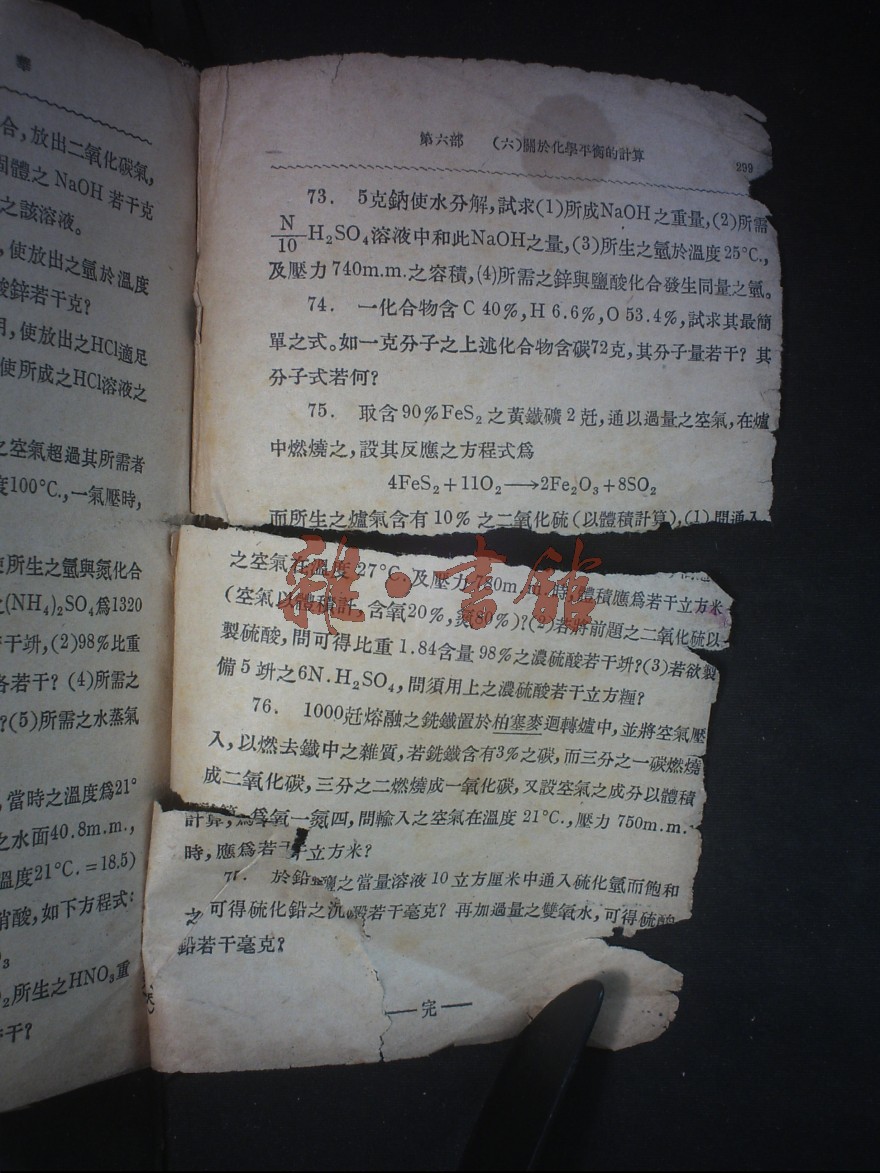 章
合,放出二氧化碳氣,
固體之 NaOH 若干克
之該溶液。
使放出之氫於溫度
酸鋅若干克?
用,使放出之HCl適足
使所成之HCl溶液之
之空氣超過其所需者
度100°C.,一氣壓時,
使所生之氫與氮化合
之(NH₄)₂SO₄爲1320
若干竔,(2)98%比重
各若干? (4)所需之
?(5)所需之水蒸氣
當時之溫度爲21°
之水面40.8m.m.,
溫度21°C.=18.5)
硝酸,如下方程式:
₃
₂所生之HNO₃重
若干?
第六部 (六)關於化學平衡的計算
299
73. 5克鈉使水分解,試求(1)所成NaOH之重量,(2)所需
N/10 H₂SO₄溶液中和此NaOH之量,(3)所生之氫於溫度25°C.,
及壓力740m.m.之容積,(4)所需之鋅與鹽酸化合發生同量之氫。
74. 一化合物含C 40%,H 6.6%,O 53.4%,試求其最簡
單之式。如一克分子之上述化合物含碳72克,其分子量若干? 其
分子式若何?
75. 取含90%FeS₂之黃鐵礦2兛,通以過量之空氣,在爐
中燃燒之,設其反應之方程式爲
4FeS₂+11O₂⟶2Fe₂O₃+8SO₂
而所生之爐氣含有10%之二氧化硫(以體積計算),(1)問通入
之空氣在溫度27°C.及壓力730m.m.時,體積應爲若干立方米
(空氣以體積計,含氧20%,氮80%)?(2)若將前題之二氧化硫以
製硫酸,問可得比重1.84含量98%之濃硫酸若干竔?(3)若欲製
備5竔之6N.H₂SO₄,問須用上之濃硫酸若干立方糎?
76. 1000兛熔融之銑鐵置於柏塞麥迴轉爐中,並將空氣壓
入,以燃去鐵中之雜質,若銑鐵含有3%之碳,而三分之一碳燃燒
成二氧化碳,三分之二燃燒成一氧化碳,又設空氣之成分以體積
計算,爲氧一氮四,問輸入之空氣在溫度21°C.,壓力750m.m.
時,應爲若干立方米?
於鉛鹽之當量溶液10立方厘米中通入硫化氫而飽和
之 可得硫化鉛之沉澱若干毫克? 再加過量之雙氧水,可得硫酸
鉛若干毫克?
—完—
雜·書館